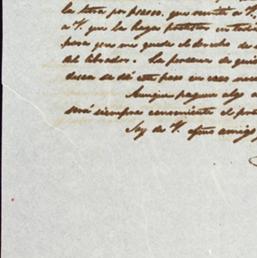 la letra por pesos. que remití a V.
a V. que la haga protestar en todo
para que me quede el derecho de
del librador. La persona de quien
desea se dé este paso en caso nece
Aunque paguen algo
será siempre conveniente el pro
Soy de V. afmo amigo